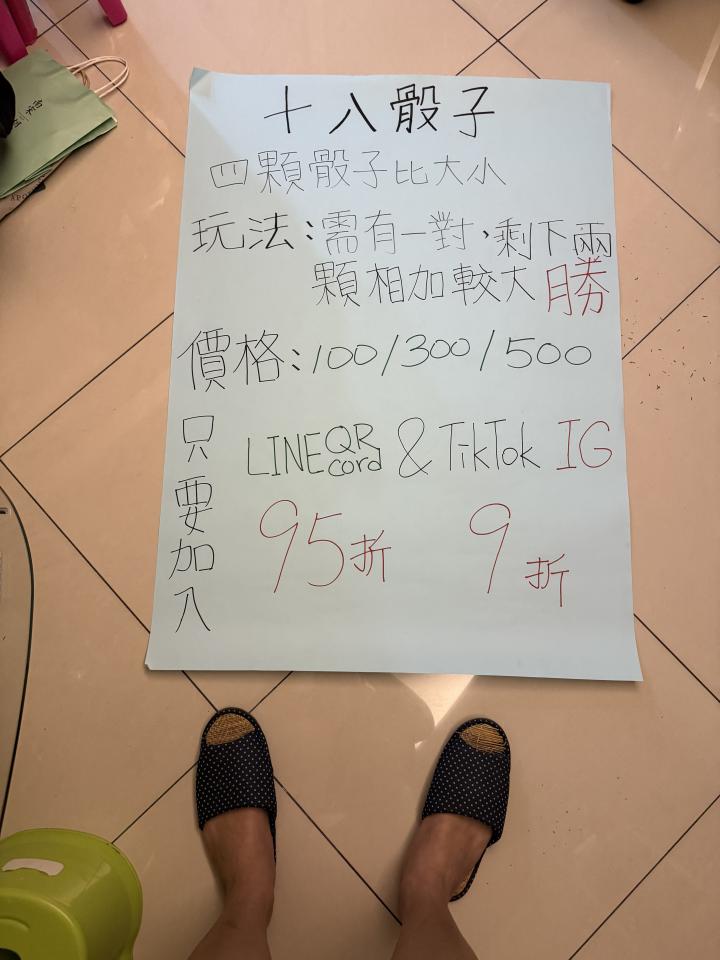 十八骰子
四顆骰子比大小
玩法：需有一對，剩下兩
顆相加較大勝
價格：100/300/500
只要加入
LINE QR cord & TikTok IG
95折 9折